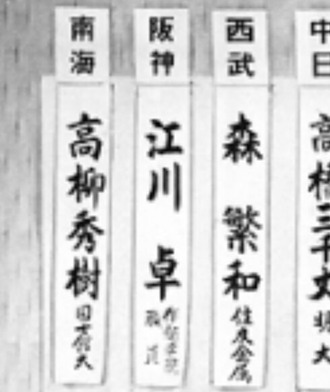 中日
高橋三千丈
西武
森繁和
住友金属
阪神
江川卓
作新学院
職員
南海
高柳秀樹
国士舘大